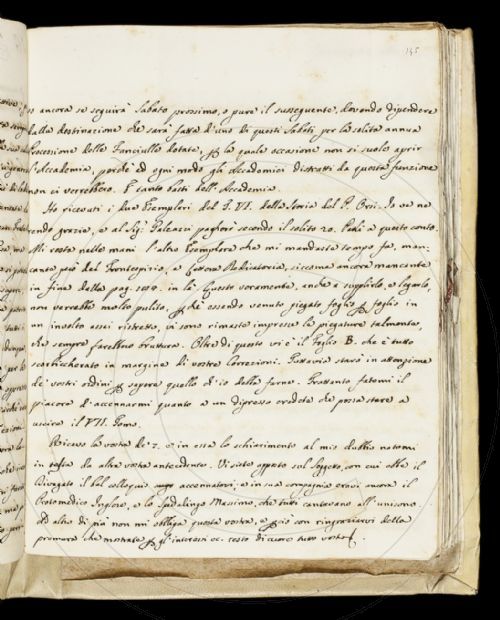 145
so ancora se seguirà Sabato prossimo, o pure il susseguente, dovendo dipendere
dalla destinazione che sarà fatta d'uno di questi Sabati per la solita annua
Processione delle Fanciulle dotate, per la quale occasione non si suole aprir
l'Accademia, perché ad ogni modo gli Accademici distratti da questa funzione
non ci verrebbero. E tanto basti dell'Accademia.
Ho ricevuti i due Esemplari del T. VI. della Storia del P. Orsi. Io ve ne
rendo grazie, e al Sig. Paleazzi pagherò secondo il solito 20. Paoli a questo conto.
Mi resta nelle mani l'altro Esemplare che mi mandaste tempo fa, man-
cante però del Frontespizio, e Dedicatoria, siccome ancora mancante
in fine dalla pag. in là. Questo veramente, anche a supplirlo, e legarlo,
non verrebbe molto pulito, perché essendo venuto piegato foglio per foglio in
un involto assai ristretto, vi sono rimaste impresse le piegature talmente,
che sempre farebbero bruttura. Oltre di questo vi è il Foglio B. che è tutto
scarticchierato in margine di vostre Correzioni. Tuttavia starà in attenzione
de' vostri ordini per sapere quello ch'io debba farne. Frattanto fatemi il
piacere d'accennarmi quanto a un dipresso credete che possa stare a
uscire il VII. Tomo.
Ricevo la vostra de' 7. e in essa lo schiarimento al mio dubbio natomi
in testa da altra vostra antecedente. Vi siete apposto sul Soggetto, con cui ebbe il
Divegato il bel colloquio accennatovi, e in sua compagnia eravi ancora il
Protomedico Inglese, e lo Spedalingo Massimo, che tutti cantavano all'unisono.
Ad altro di più non mi obbliga questa vostra, e perciò con ringraziarvi della
premura che mostrate per gl'interessi ec. resto di cuore tutto vostro.